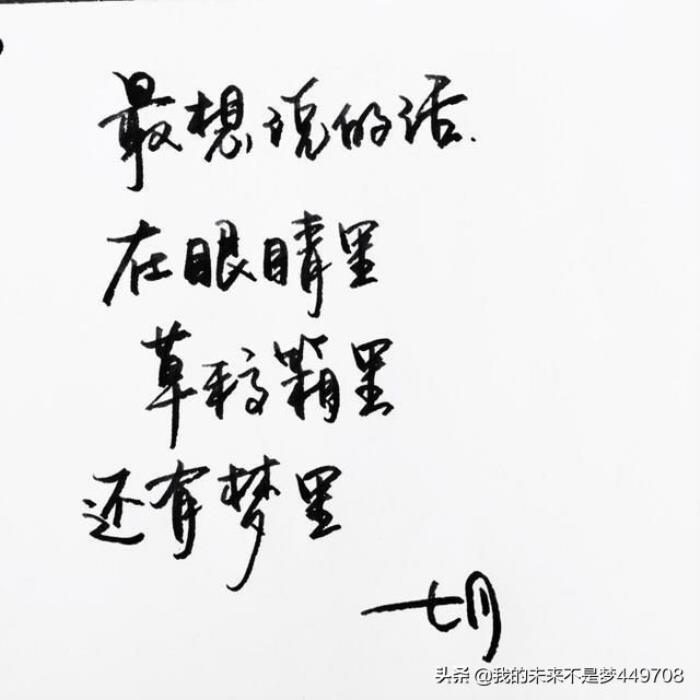 最想说的话
在眼睛里
草稿箱里
还有梦里
七月
头条 @我的未来不是梦449708